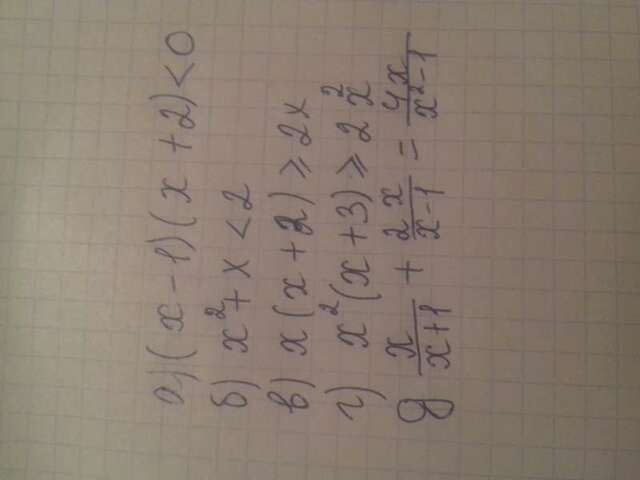 а) (x-1)(x+2)<0
б) x²+x<2
в) x(x+2)⩾2x
г) x²(x+3)⩾2x²
д x/(x+1) + 2x/(x-1) = 4x/(x²-1)